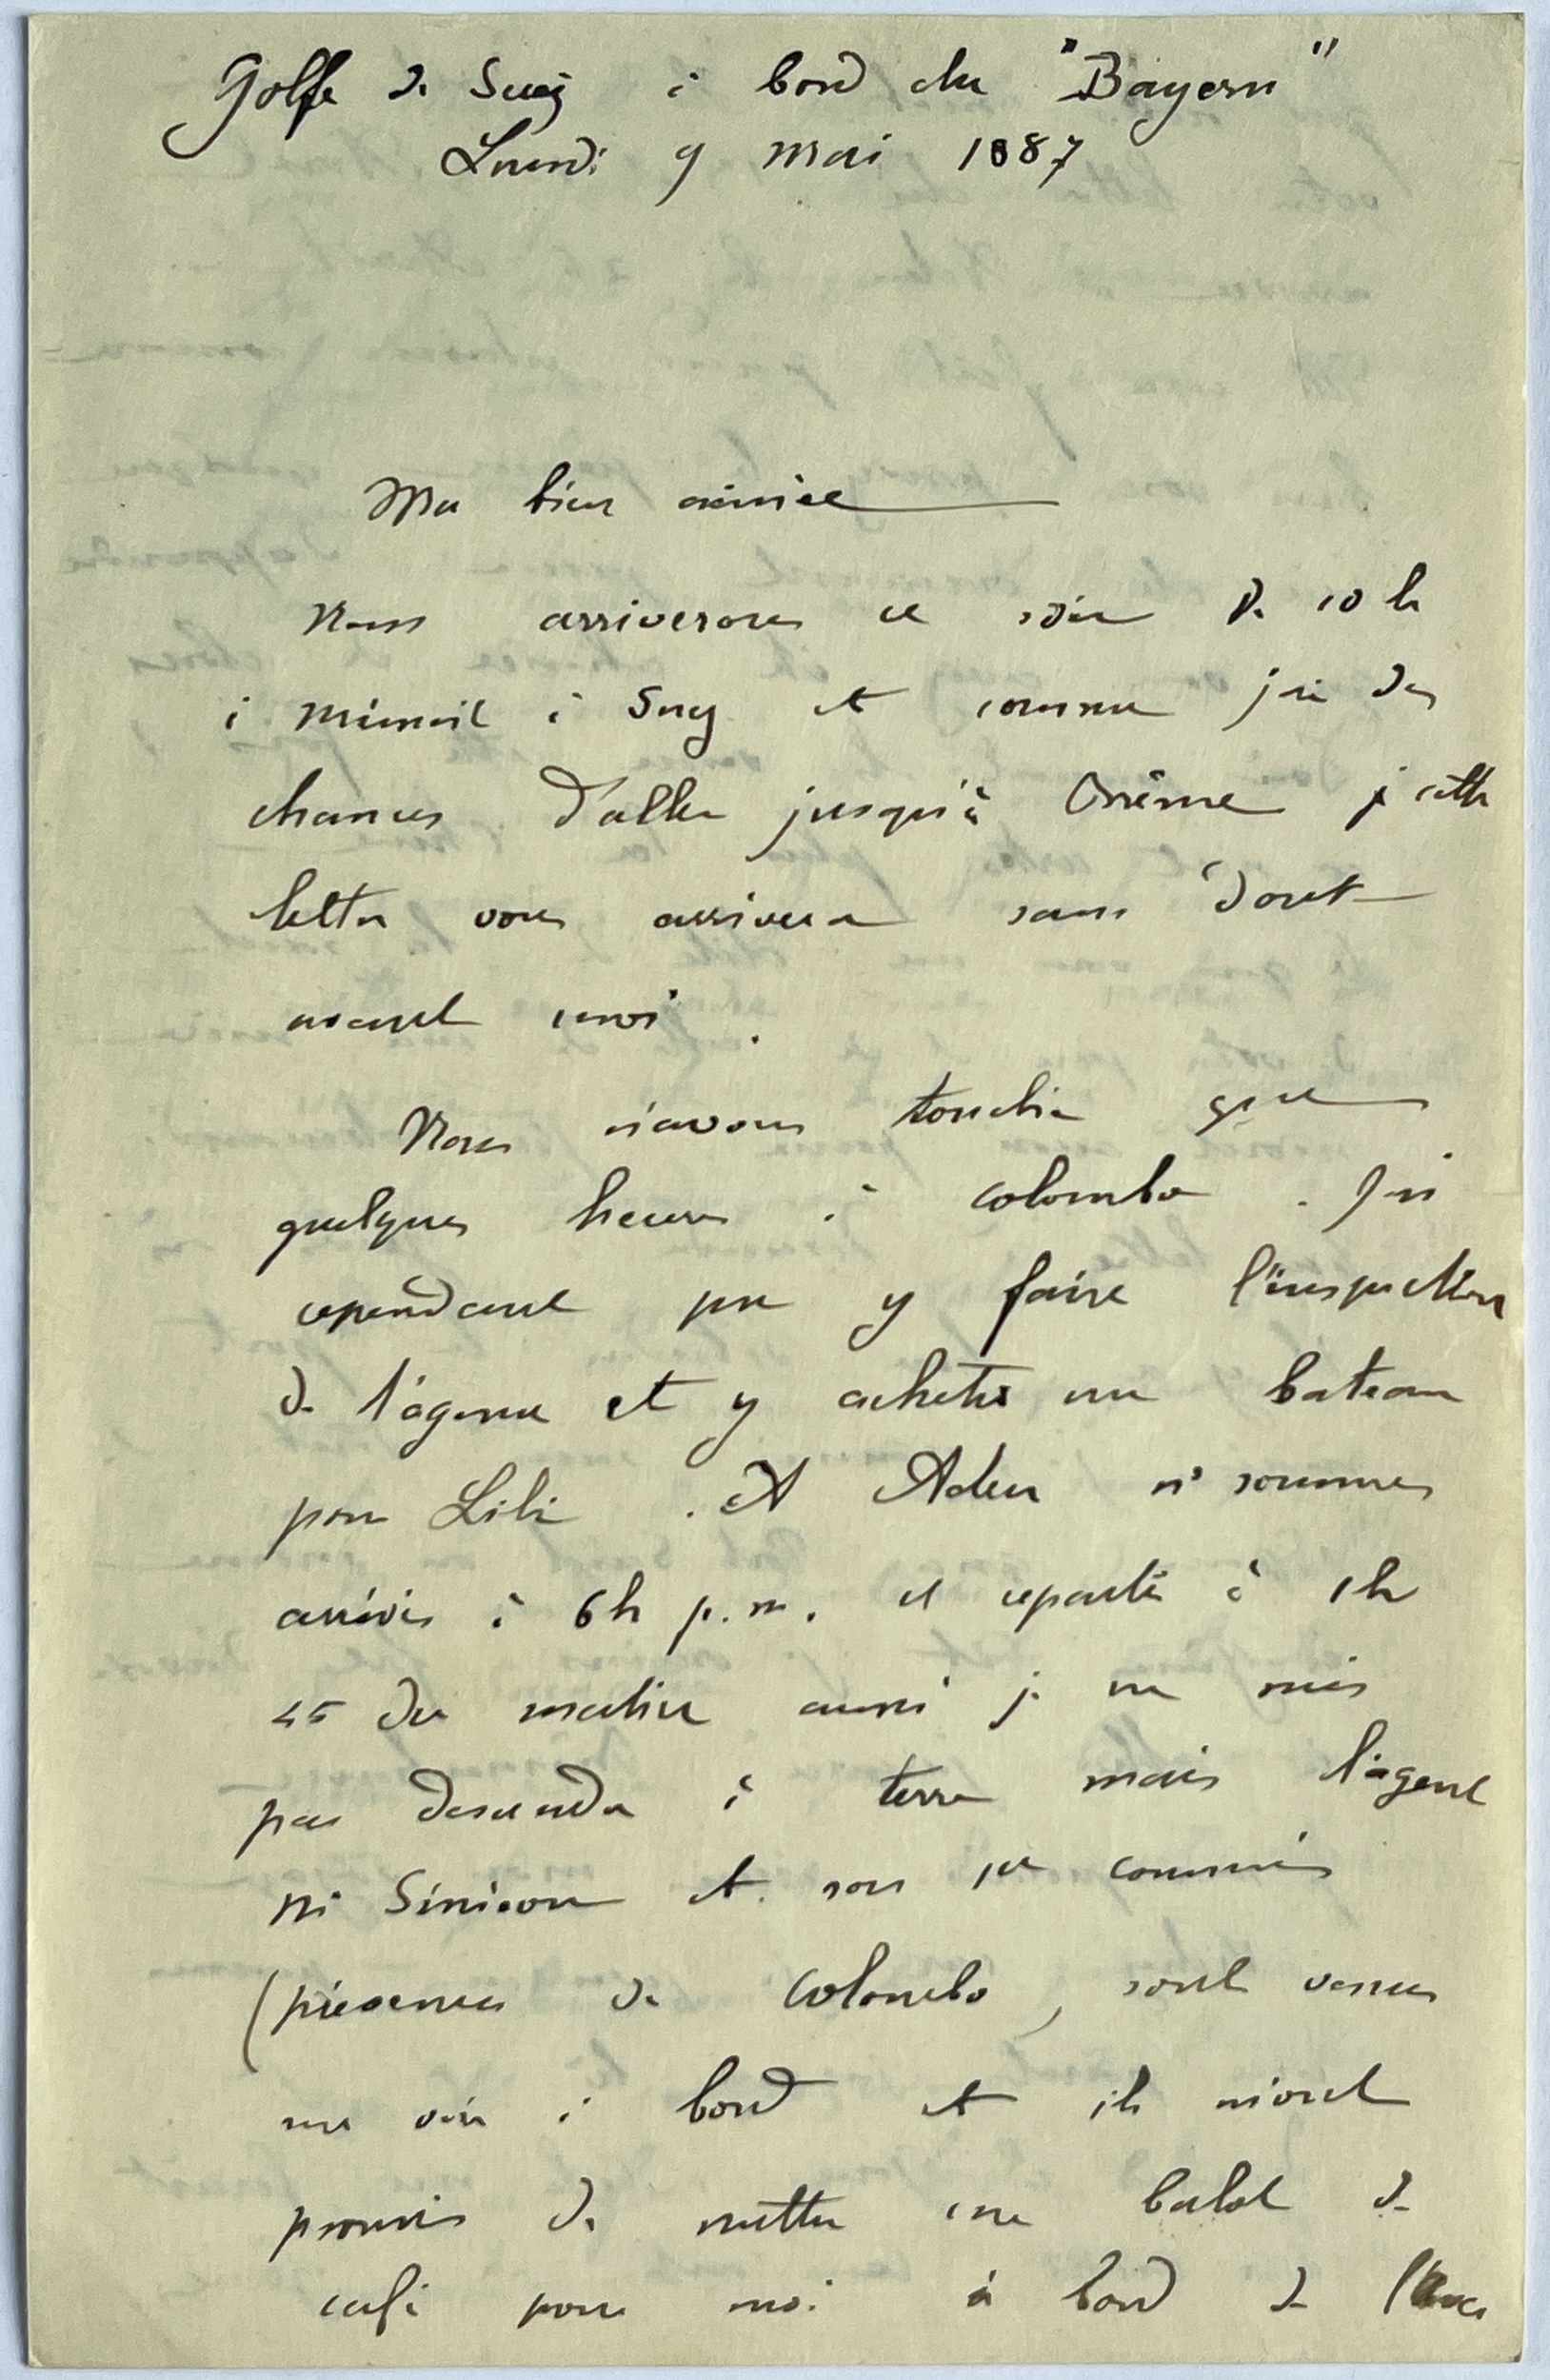 Golfe de Suez à bord du "Bayern"
Lundi 9 mai 1887
Ma bien aimée
Nous arriverons ce soir de 10 h
à minuit à Suez et comme j'ai des
chances d'aller jusqu'à Brême cette
lettre vous arrivera sans doute
avant moi.
Nous n'avons touché que
quelques heures à Colombo. J'ai
cependant pu y faire l'inspection
de l'agence et y acheter un bateau
pour Lili. A Aden ns sommes
arrivés à 6h p.m. et repartis à 1h
45 du matin aussi je ne suis
pas descendu à terre mais l'agent
Mr et son 1er commis
( de Colombo) sont venus
me voir à bord et ils m'ont
promis de mettre une balle de
café pour moi à bord de